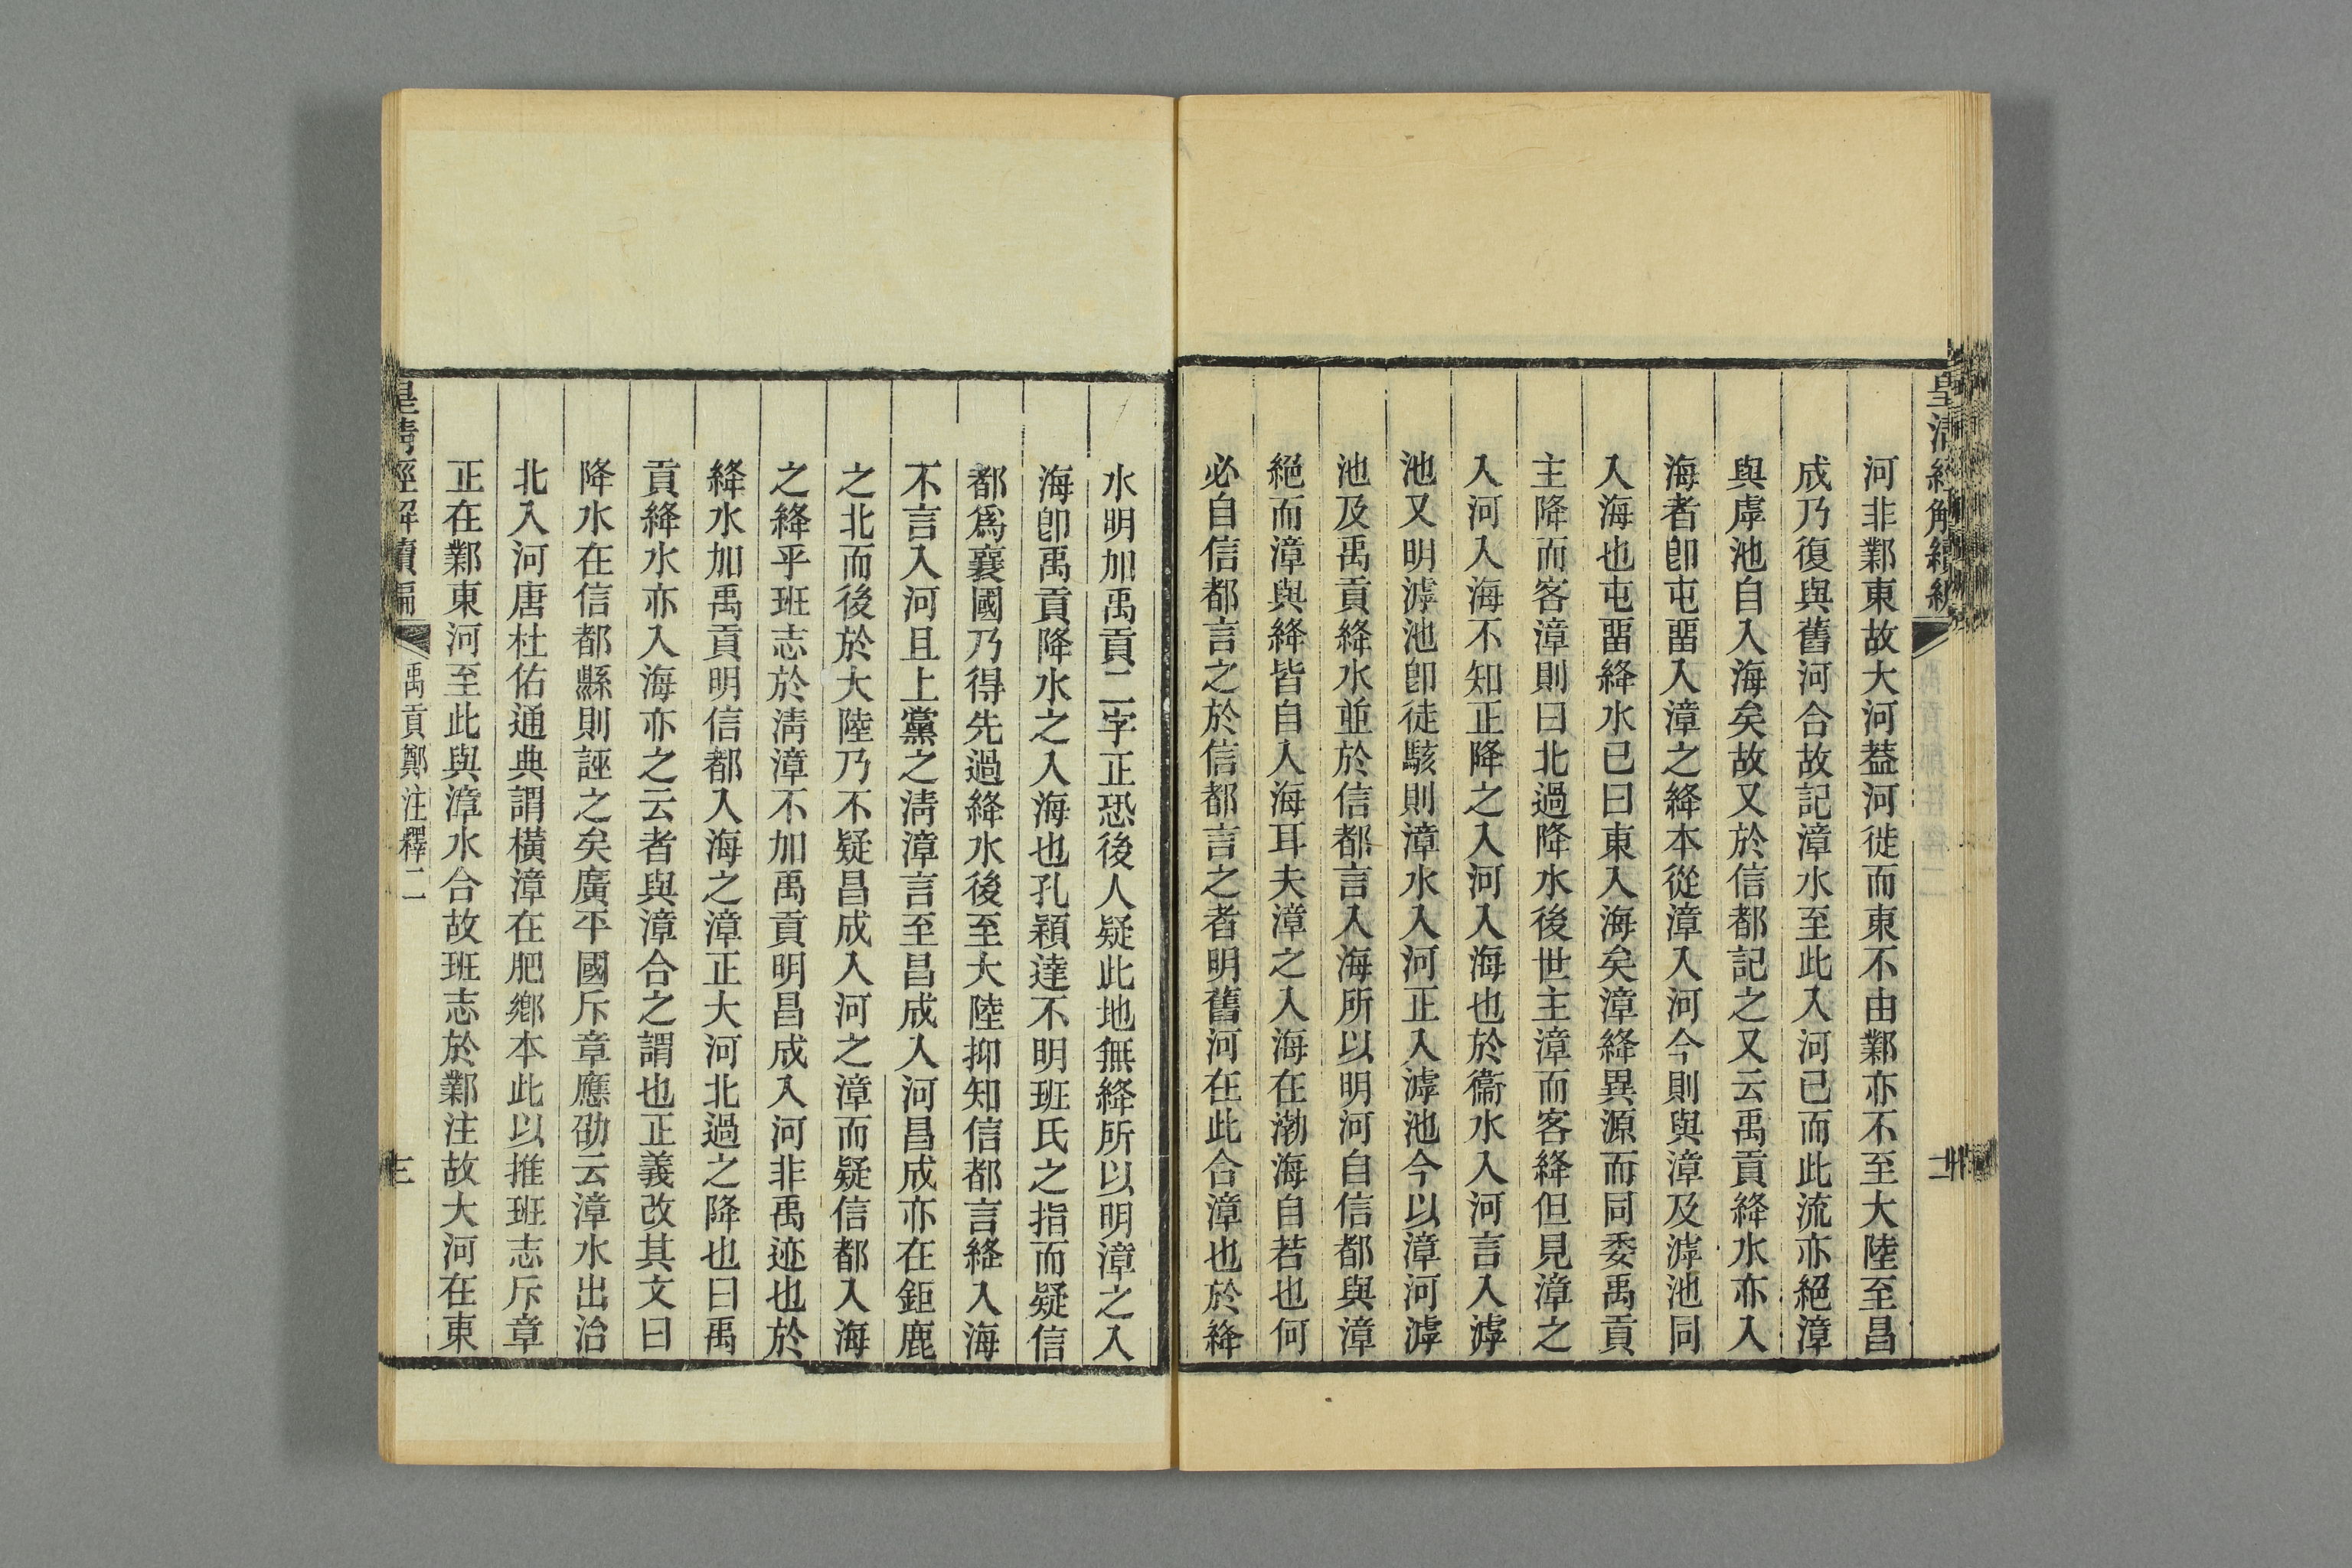 皇清經解續編
河非鄴東故大河葢河徙而東不由鄴亦不至大陸至昌
成乃復與舊河合故記漳水至此入河已而此流亦絕漳
與虖池自入海矣故又於信都記之又云禹貢絳水亦入
海者卽屯畱入漳之絳本從漳入河今則與漳及滹池同
入海也屯畱絳水已曰東入海矣漳絳異源而同委禹貢
主降而客漳則曰北過降水後世主漳而客絳但見漳之
入河入海不知正降之入河入海也於衞水入河言入滹
池又明滹池卽徒駭則漳水入河正入滹池今以漳河滹
池及禹貢絳水並於信都言入海所以明河自信都與漳
絕而漳與絳皆自入海耳夫漳之入海在渤海自若也何
必自信都言之於信都言之者明舊河在此合漳也於絳
水明加禹貢二字正恐後人疑此地無絳所以明漳之入
海卽禹貢降水之入海也孔穎達不明班氏之指而疑信
都爲襄國乃得先過絳水後至大陸抑知信都言絳入海
不言入河且上黨之淸漳言至昌成入河昌成亦在鉅鹿
之北而後於大陸乃不疑昌成入河之漳而疑信都入海
之絳乎班志於淸漳不加禹貢明昌成入河非禹迹也於
絳水加禹貢明信都入海之漳正大河北過之降也曰禹
貢絳水亦入海亦之云者與漳合之謂也正義改其文曰
降水在信都縣則誣之矣廣平國斥章應劭云漳水出治
北入河唐杜佑通典謂橫漳在肥鄉本此以推班志斥章
正在鄴東河至此與漳水合故班志於鄴注故大河在東
皇淸經解續編
禹貢鄭注釋二